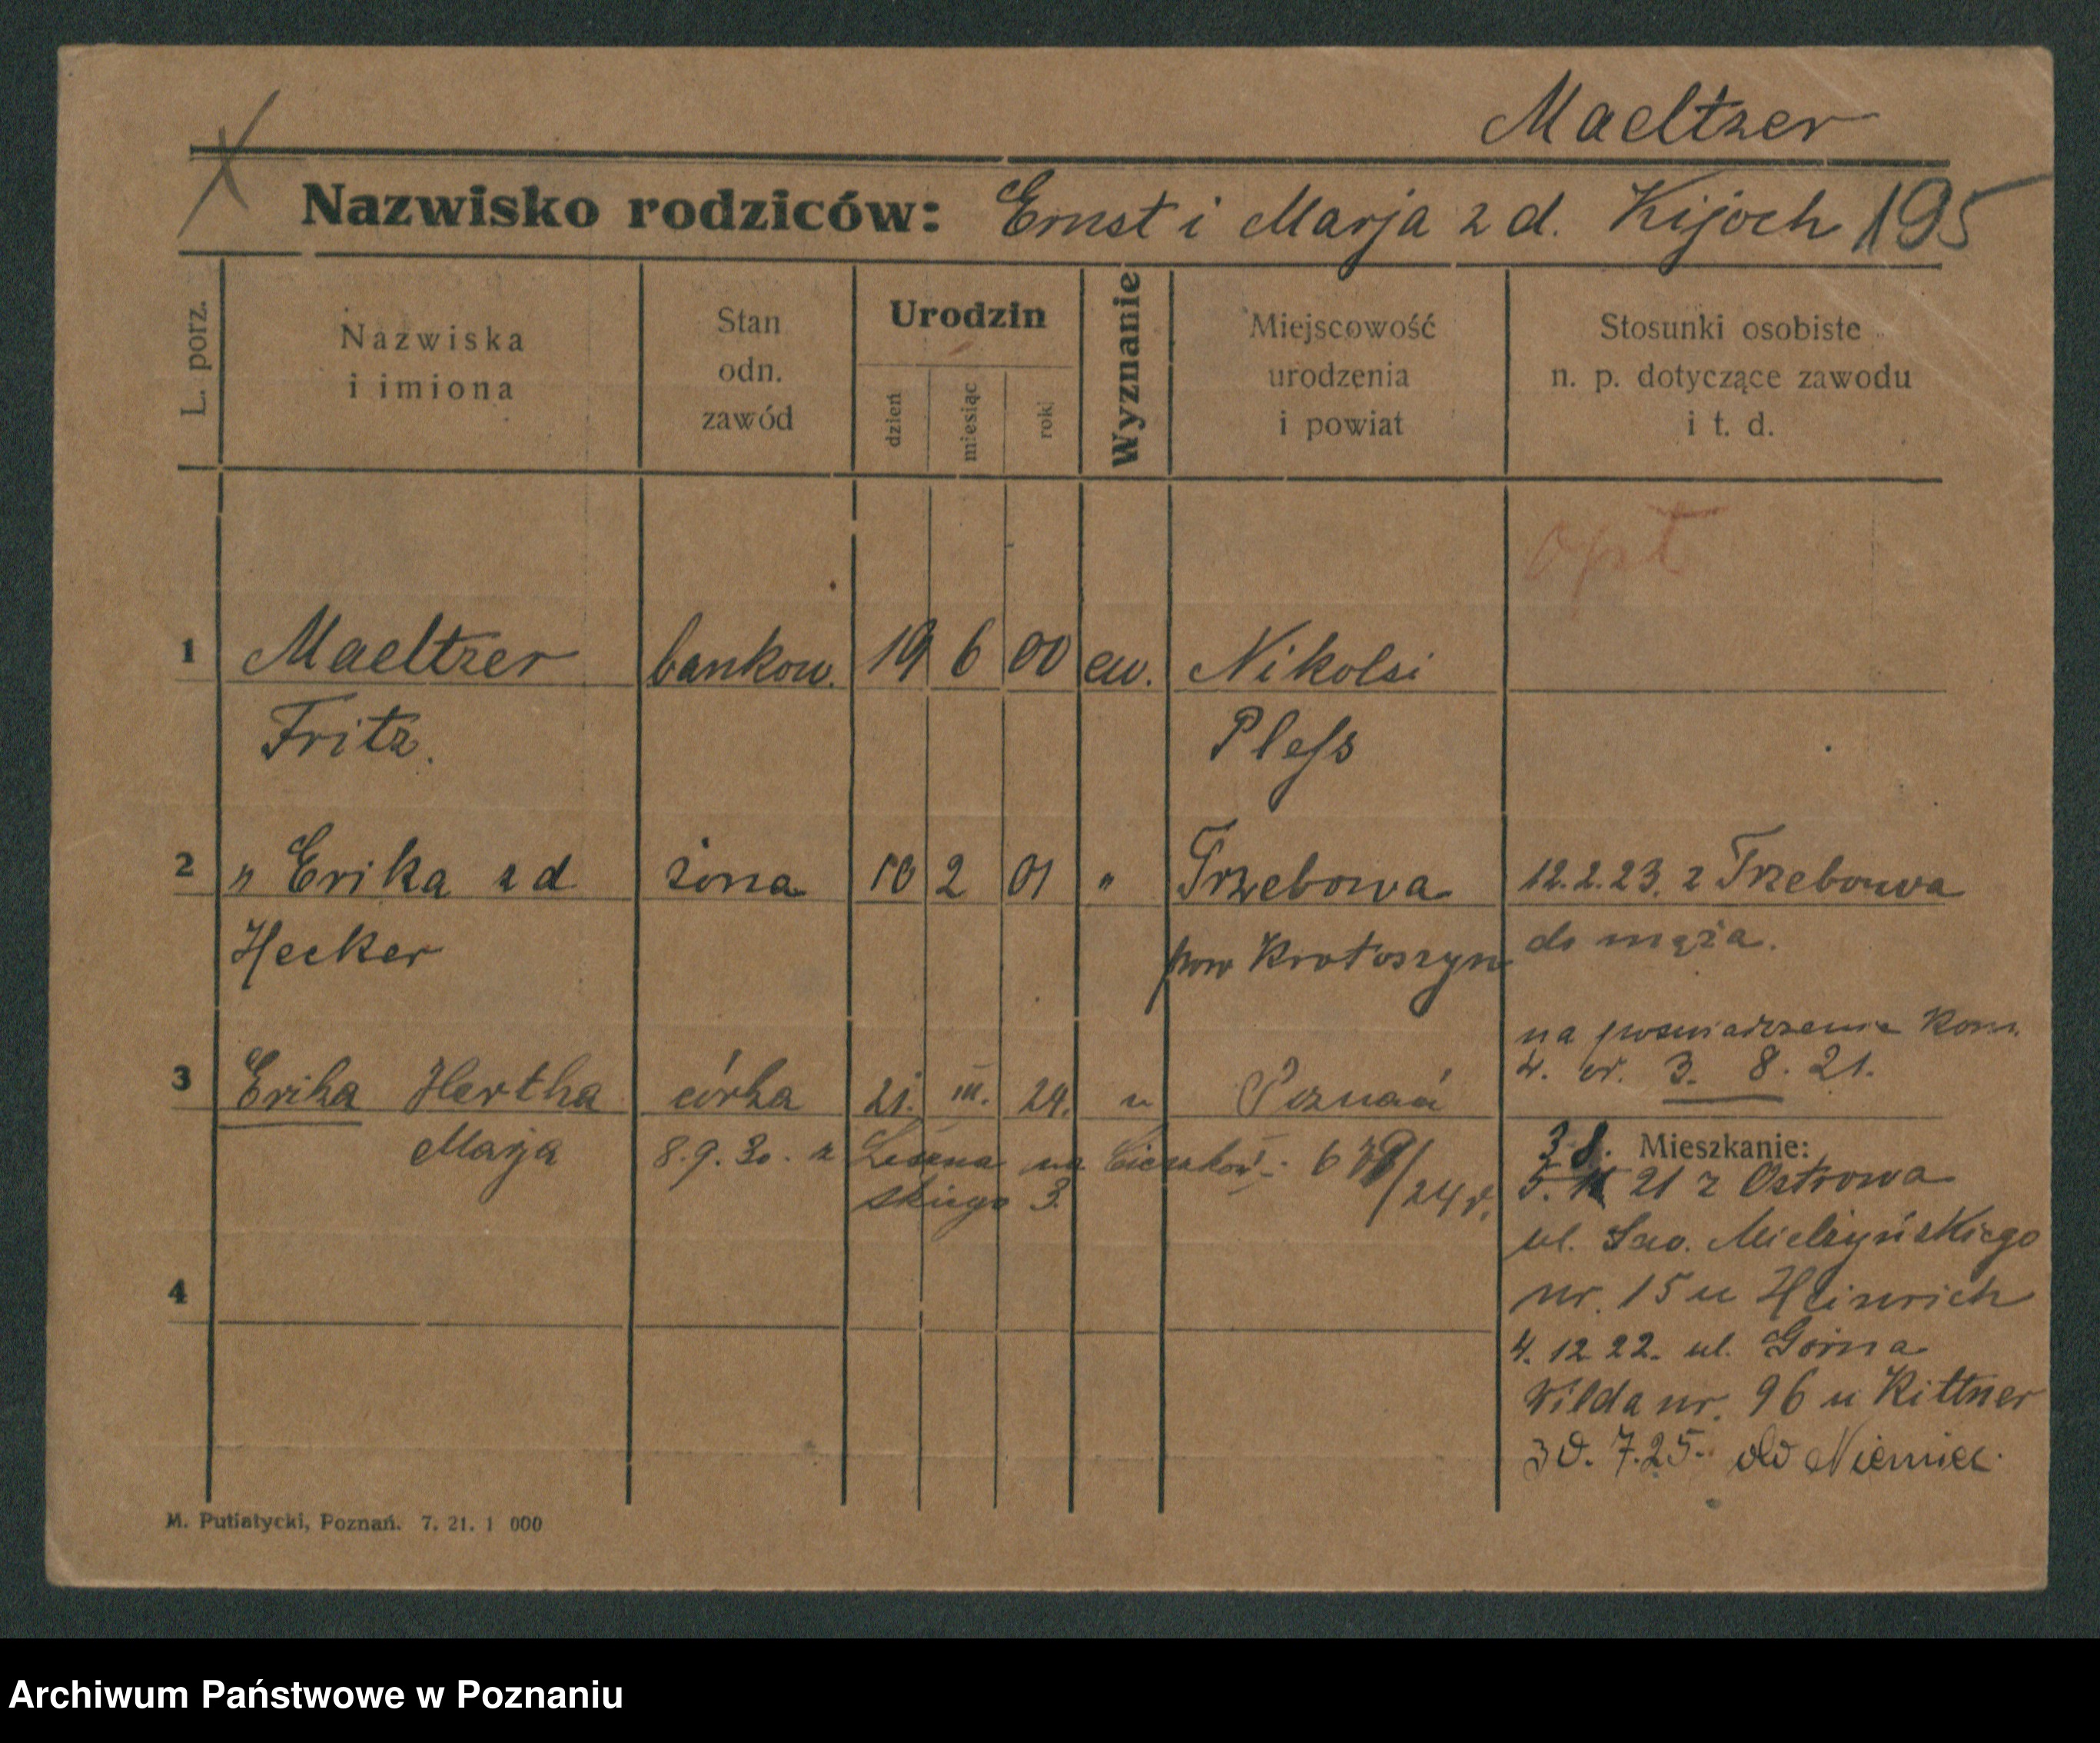 Maeltzer
Nazwisko rodziców: Ernst i Marja z d. Kijoch 195
L. porz.
Nazwiska
i imiona
Stan
odn.
zawód
Urodzin
dzień
miesiąc
rok
Wyznanie
Miejscowość
urodzenia
i powiat
Stosunki osobiste
n. p. dotyczące zawodu
i t. d.
opt
1 Maeltzer bankow. 19 6 00 ew. Nikolsi
Fritz. Pless
2 " Erika z d żona 10 2 01 " Trzebowa 12.2.23. z Trzebowa
Hecker pow Krotoszyn do męża.
na poświadczenie Kom.
4. 3. 8. 21.
3 Erika Hertha córka 21. III. 24. " Poznań
Marja 8.9.30. z Leszna na Cieszkow-
skiego 3. 6
/24 r.
3 8. Mieszkanie:
5. 21 z Ostrowa
ul. Sew. Mielżyńskiego
nr. 15 u Heinrich
4
4. 12 22. ul. Górna
Wilda nr. 96 u Kittner
30. 7.25. do Niemiec.
M. Putiatycki, Poznań. 7. 21. 1 000
Archiwum Państwowe w Poznaniu